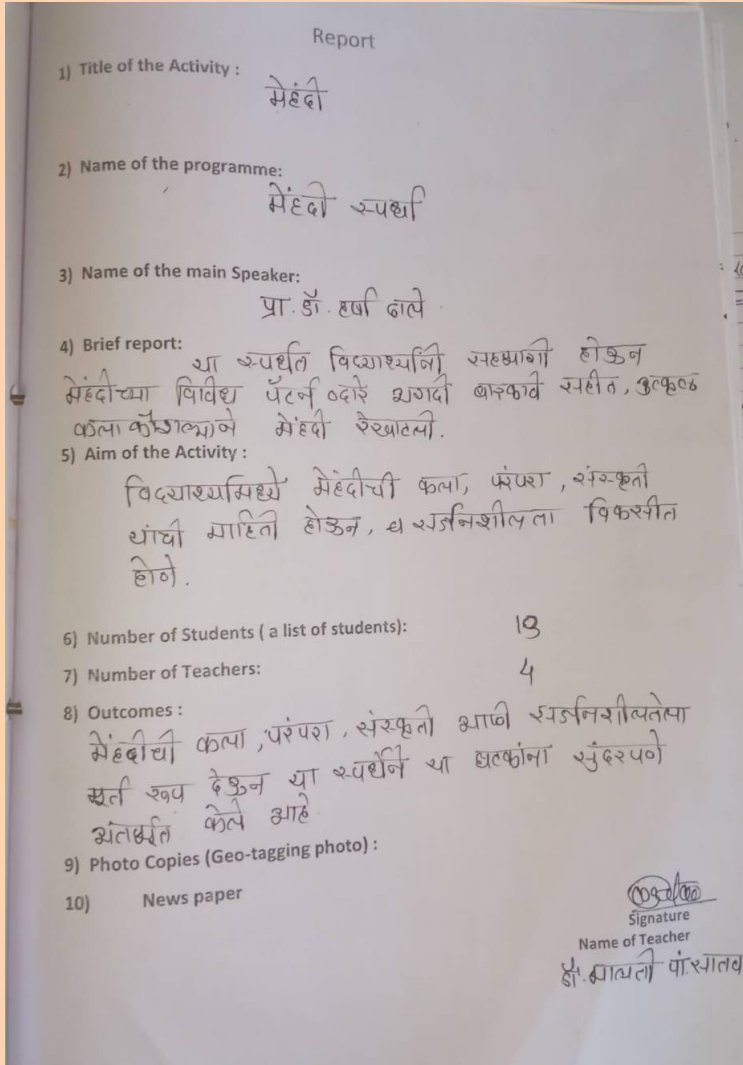 Report
1) Title of the Activity :
मेहंदी
2) Name of the programme:
मेंहदी स्पर्धा
3) Name of the main Speaker:
प्रा. डॉ. हर्षा दाते
4) Brief report:
या स्पर्धेत विद्यार्थ्यांनी सहभागी होऊन
मेंहदीच्या विविध पॅटर्न व्दारे अगदी बारकावे सहीत, उत्कृष्ठ
कला कौशल्याने मेंहदी रेखाटली.
5) Aim of the Activity :
विद्यार्थ्यांमध्ये मेहंदीची कला, परंपरा, संस्कृती
यांची माहिती होऊन, व सर्जनशीलता विकसीत
होणे.
6) Number of Students ( a list of students): 19
7) Number of Teachers: 4
8) Outcomes :
मेंहदीची कला, परंपरा, संस्कृती आणि सर्जनशीलतेला
मूर्त रूप देऊन या स्पर्धेने या घटकांना सुंदरपणे
अंतर्भूत केले आहे.
9) Photo Copies (Geo-tagging photo) :
10) News paper
Signature
Name of Teacher
डॉ. मालती पां. सातव